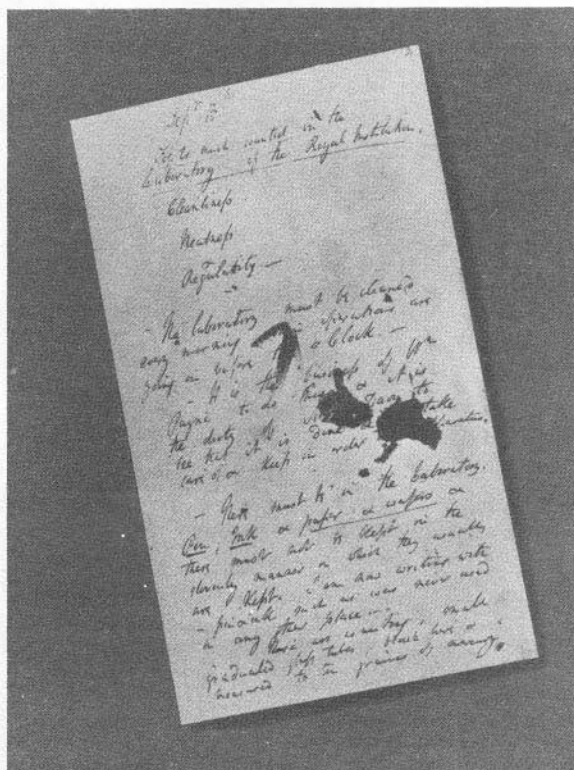 Sept
much wanted in the
Laboratory of the Royal Institution.
Cleanliness
Neatness
Regularity —
— The laboratory must be cleaned
every morning operations are
going on before o Clock. —
— It is the business of Wm
Payne to do this & it is
the duty of Davy to
see that it is done & to take
care of & keep in order
— There must be in the Laboratory.
Pen, Ink & paper & wafers &
these must not be kept in the
slovenly manner in which they usually
are kept. I am now writing with
a pen & ink such as was never used
in any other place —
There are wanting, small
graduated glass tubes, blown here &
measured to ten grains of mercury.